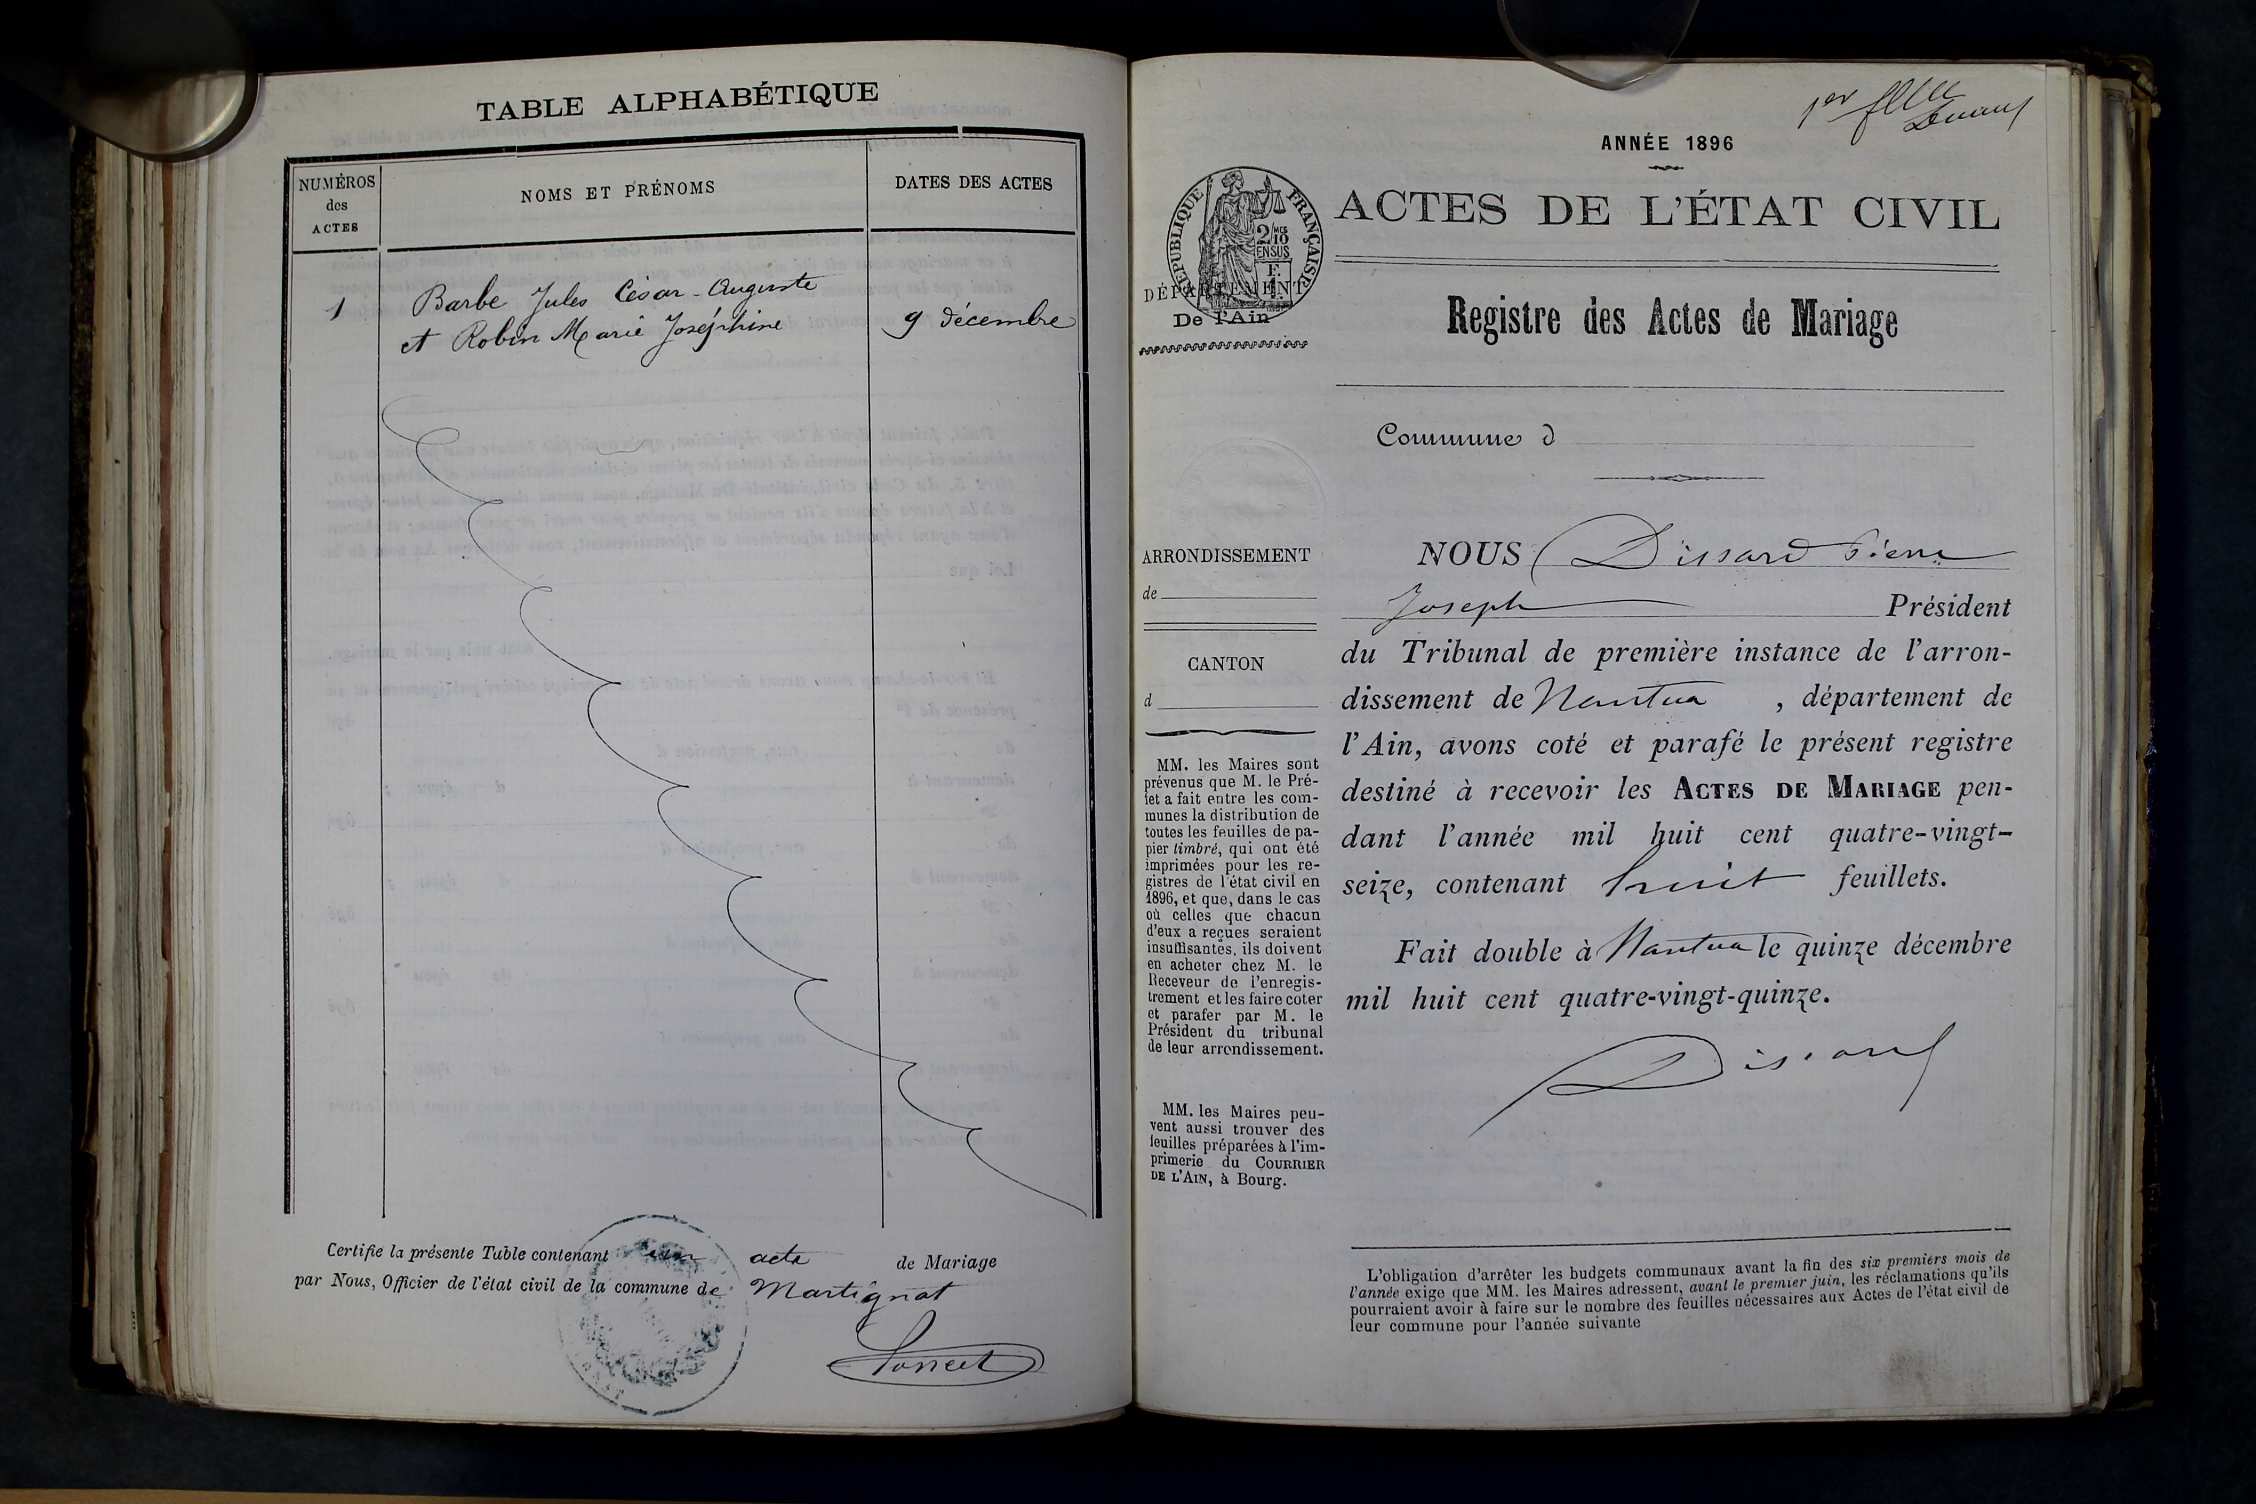 TABLE ALPHABÉTIQUE
NUMÉROS
des
ACTES
NOMS ET PRÉNOMS
DATES DES ACTES
1
Barbe Jules César-Auguste
et Robin Marie Joséphine
9 décembre
Certifie la présente Table contenant un acte de Mariage
par Nous, Officier de l'état civil de la commune de Martignat
1er
Dissard
ANNÉE 1896
RÉPUBLIQUE FRANÇAISE
ACTES DE L'ÉTAT CIVIL
DÉPARTEMENT
De l'Ain
Registre des Actes de Mariage
Commune d
ARRONDISSEMENT
de
CANTON
d
MM. les Maires sont
prévenus que M. le Pré-
fet a fait entre les com-
munes la distribution de
toutes les feuilles de pa-
pier timbré, qui ont été
imprimées pour les re-
gistres de l'état civil en
1896, et que, dans le cas
où celles que chacun
d'eux a reçues seraient
insuffisantes, ils doivent
en acheter chez M. le
Receveur de l'enregis-
trement et les faire coter
et parafer par M. le
Président du tribunal
de leur arrondissement.
MM. les Maires peu-
vent aussi trouver des
feuilles préparées à l'im-
primerie du COURRIER
DE L'AIN, à Bourg.
NOUS Dissard Pierre
Joseph Président
du Tribunal de première instance de l'arron-
dissement de Nantua, département de
l'Ain, avons coté et parafé le présent registre
destiné à recevoir les ACTES DE MARIAGE pen-
dant l'année mil huit cent quatre-vingt-
seize, contenant huit feuillets.
Fait double à Nantua le quinze décembre
mil huit cent quatre-vingt-quinze.
Dissard
L'obligation d'arrêter les budgets communaux avant la fin des six premiers mois de
l'année exige que MM. les Maires adressent, avant le premier juin, les réclamations qu'ils
pourraient avoir à faire sur le nombre des feuilles nécessaires aux Actes de l'état civil de
leur commune pour l'année suivante